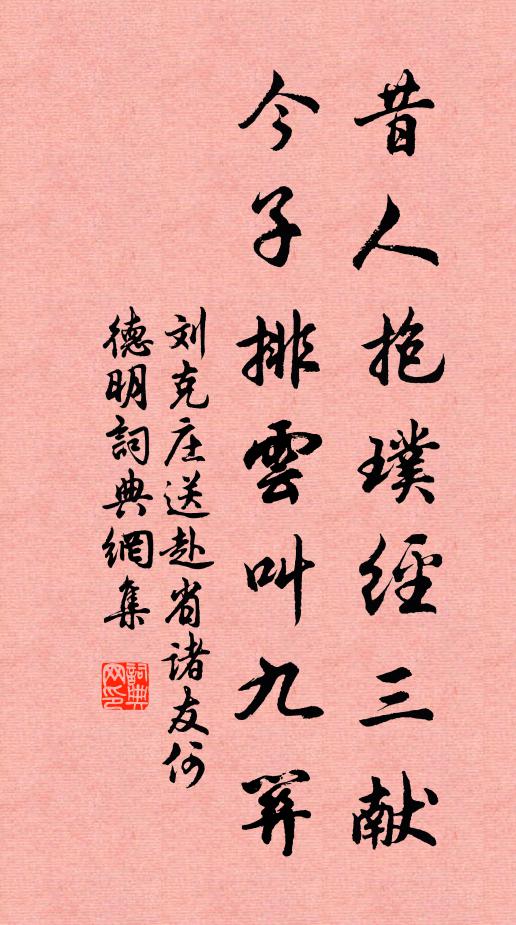 昔人抱璞經三献
今子排雲叫九關
刘克庄送赴省诸友何
德明詞典網集
詞典网印